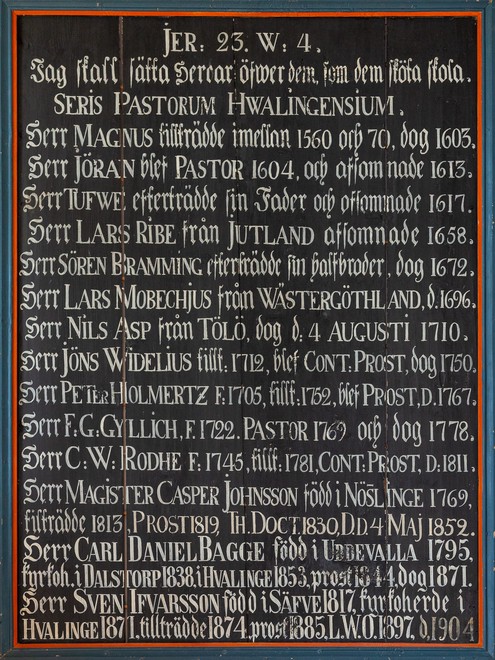 JER: 23. W: 4.
Jag skall sätta Herrar öfwer dem, som dem sköta skola.
SERIS PASTORUM HWALINGENSIUM.
Herr MAGNUS tillträdde imellan 1560 och 70, dog 1603.
Herr JÖRAN blef PASTOR 1604, och afsomnade 1613.
Herr TUFWE efterträdde sin Fader och afsomnade 1617.
Herr LARS RIBE från JUTLAND afsomnade 1658.
Herr SÖREN BRAMMING efterträdde sin halfbroder, dog 1672.
Herr LARS MOBECHJUS från WÄSTERGÖTHLAND, d. 1696.
Herr NILS ASP från TÖLÖ, dog d: 4 AUGUSTI 1710.
Herr JÖNS WIDELIUS tillt: 1712, blef CONT: PROST, dog 1750.
Herr PETER HOLMERTZ F. 1705, tillt: 1752, blef PROST, D. 1767.
Herr F: G: GYLLICH, F. 1722. PASTOR 1769 och dog 1778.
Herr C: W: RODHE F: 1745, tillt: 1781, CONT: PROST, D: 1811.
Herr MAGISTER CASPER JOHNSSON född i NÖSLINGE 1769,
tillträdde 1813, PROST 1819, TH. DOCT. 1830, D D 4 MAJ 1852.
Herr CARL DANIEL BAGGE född i UDDEVALLA 1795,
kyrkoh. i DALSTORP 1838, i HVALINGE 1853, prost 1844, dog 1871.
Herr SVEN IFVARSSON född i SÄFVE 1817, kyrkoherde i
HVALINGE 1871, tillträdde 1874, prost 1885, L.W.O. 1897, d. 1904